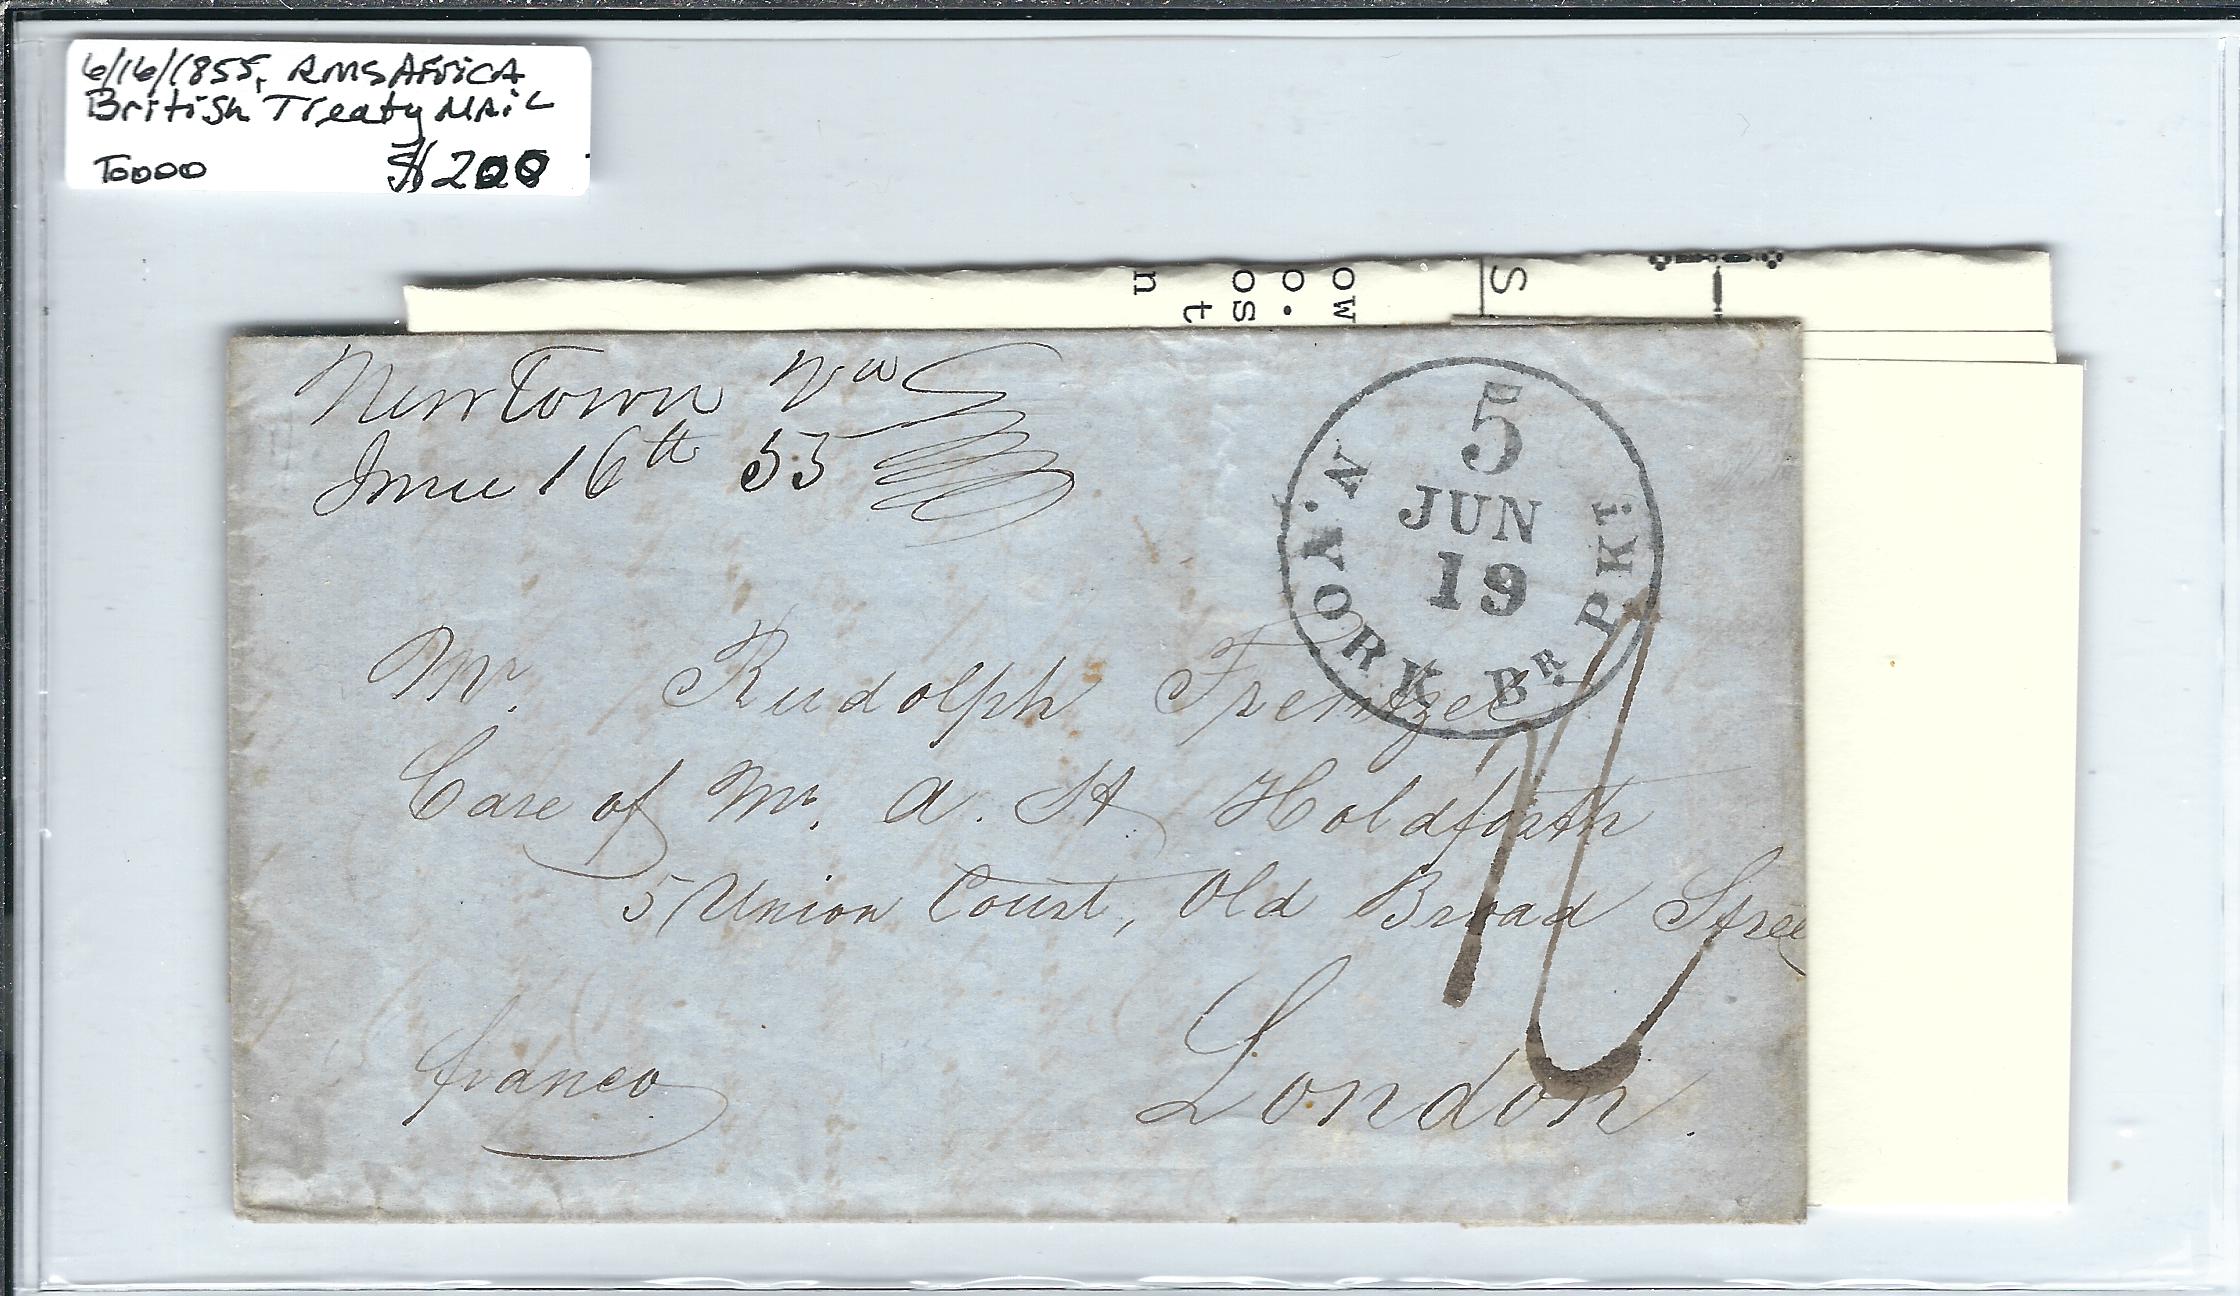 6/16/1855, RMS AFRICA
British Treaty MAIL
TODDD $200
u
t
so
o.
ow
S
Newtown Va
June 16th 55
5
JUN
19
N. YORK BR. PKT.
Mr. Rudolph Frentzel
Care of Mr. A. St Holdforth
5 Union Court, Old Broad Stree
franco
London.